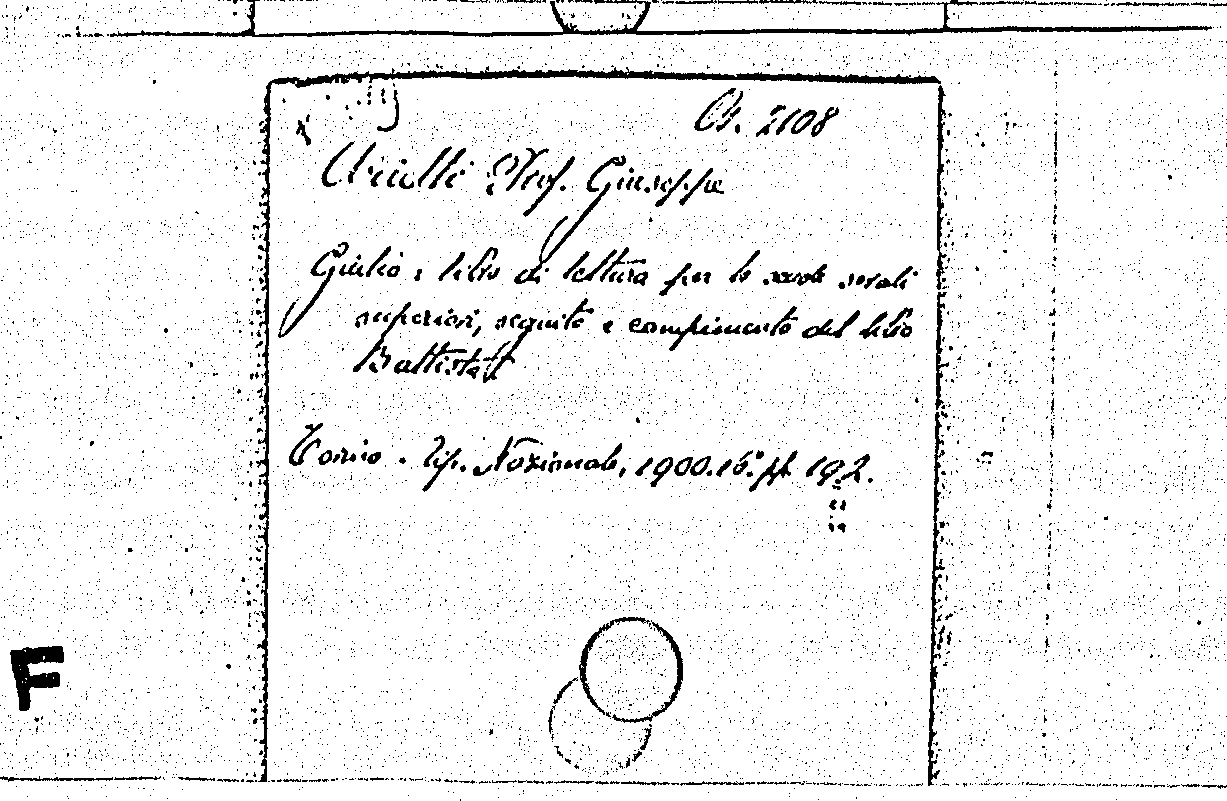 Cs. 2108
Prof. Giuseppe
Giulio, libro di lettura per le scuole serali
superiori, seguito e compimento del libro
Battista
Torino. Tip. Nazionale, 1900. 16.° pp. 192.
F